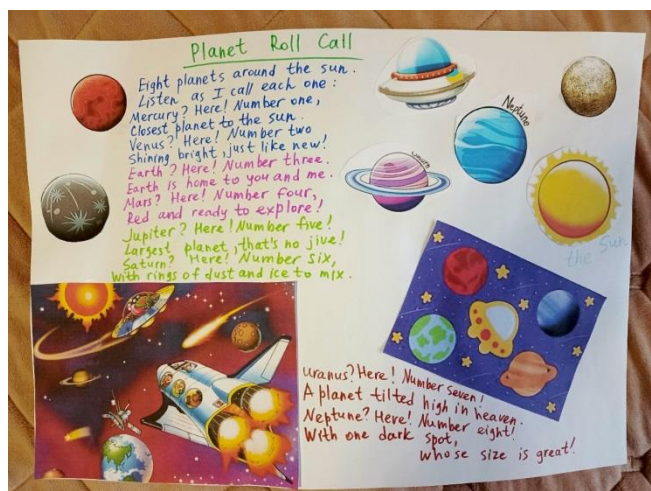 Planet Roll Call
Eight planets around the sun.
Listen as I call each one:
Mercury? Here! Number one,
Closest planet to the sun.
Venus? Here! Number two
Shining bright, just like new!
Earth? Here! Number three.
Earth is home to you and me.
Mars? Here! Number four,
Red and ready to explore!
Jupiter? Here! Number five!
Largest planet, that's no jive!
Saturn? Here! Number six,
With rings of dust and ice to mix.
Neptune
the Sun
Uranus? Here! Number seven!
A planet tilted high in heaven.
Neptune? Here! Number eight!
With one dark spot,
whose size is great!